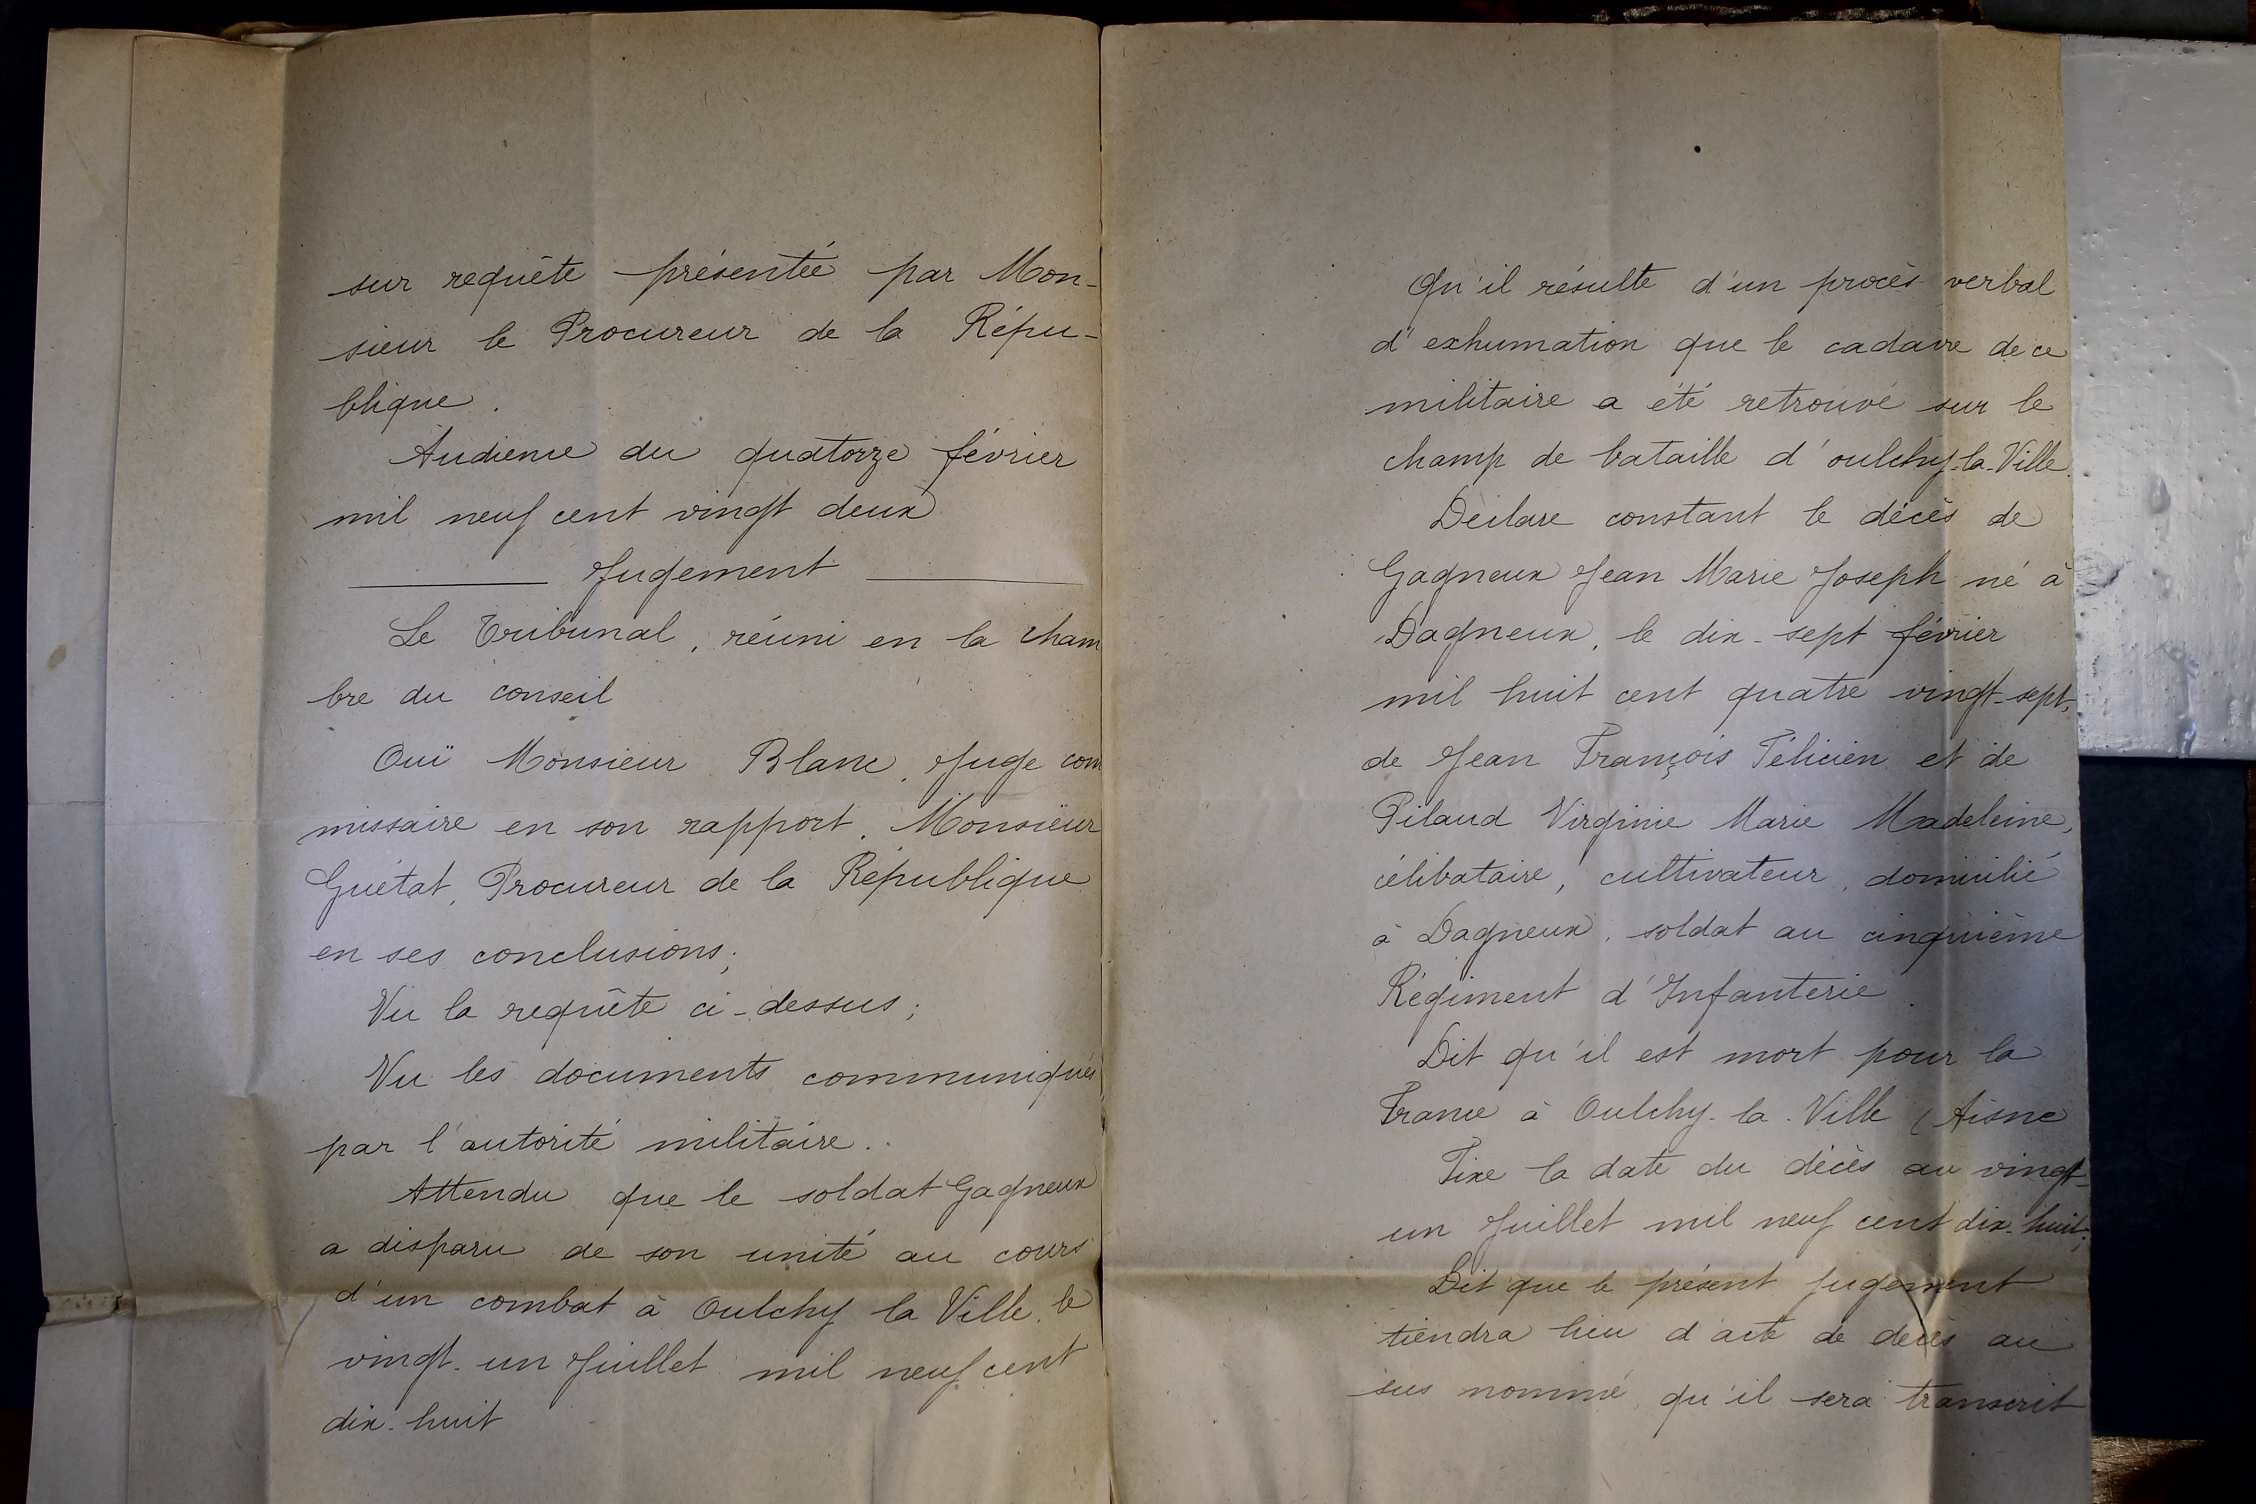 sur requête présentée par Mon-
sieur le Procureur de la Répu-
blique.
Audience du quatorze février
mil neuf cent vingt deux
Jugement
Le Tribunal, réuni en la cham
bre du conseil
Ouï Monsieur Blanc, Juge com
missaire en son rapport. Monsieur
Guétat, Procureur de la République
en ses conclusions;
Vu la requête ci-dessus;
Vu les documents communiqués
par l'autorité militaire.
Attendu que le soldat Gagneux
a disparu de son unité au cours
d'un combat à Oulchy la Ville, le
vingt-un Juillet mil neuf cent
dix-huit
Qu'il résulte d'un procès-verbal
d'exhumation que le cadavre de ce
militaire a été retrouvé sur le
champ de bataille d'oulchy-la-Ville.
Déclare constant le décès de
Gagneux Jean Marie Joseph né à
Dagneux, le dix-sept février
mil huit cent quatre vingt-sept,
de Jean François Félicien et de
Pilaud Virginie Marie Madeleine,
célibataire, cultivateur, domicilié
à Dagneux, soldat au cinquième
Régiment d'Infanterie.
Dit qu'il est mort pour la
France à Oulchy-la-Ville (Aisne
Fixe la date du décès au vingt-
un Juillet mil neuf cent dix-huit;
Dit que le présent jugement
tiendra lieu d'acte de décès au
sus nommé, qu'il sera transcrit